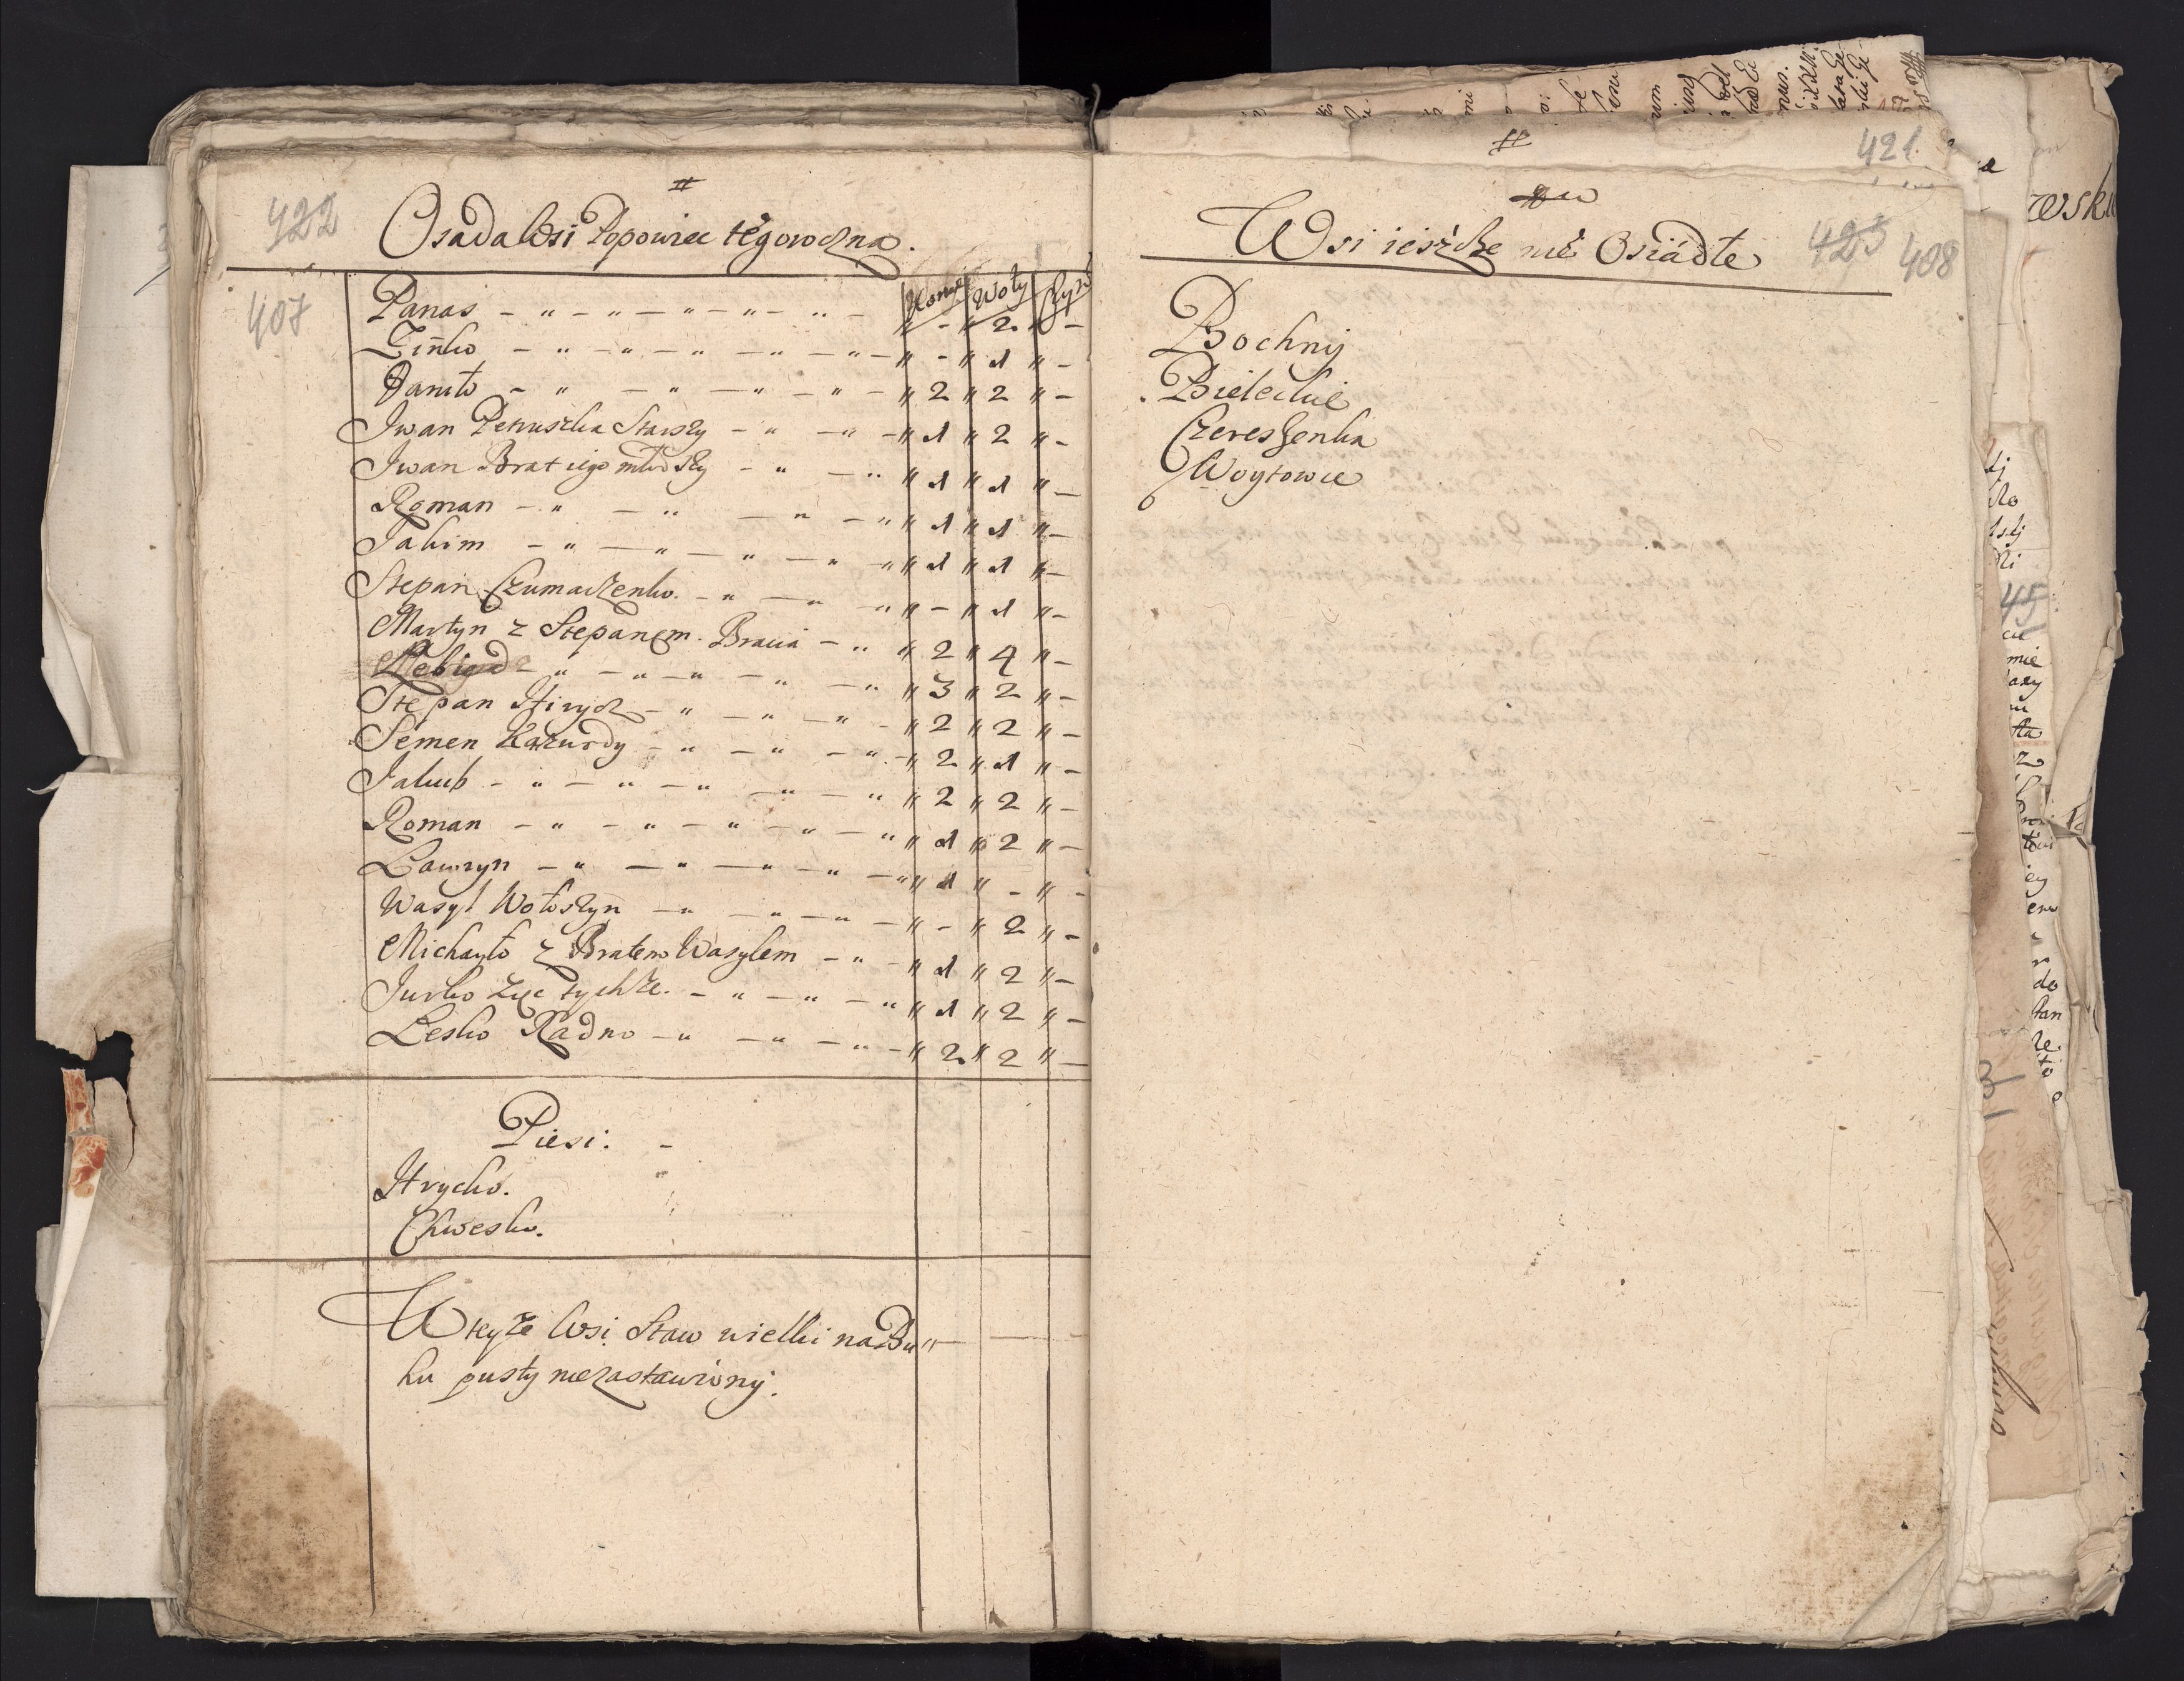 422
Osada Wsi Popowiec tegoroczna.
407
Konie Woły
Panas - " - " - " - " - " - " - " 2 " -
Zińko - " - " - " - " - " - " - " 1 " -
Daniło - " - " - " - " - " 2 " 2 " -
Iwan Petruszka Starszy - " - " - " 1 " 2 " -
Iwan Brat iego młodszy - " - " " 1 " 1 " -
Roman - " - " - " - " " 1 " 1 " -
Jakim - " - " - " - " " " 1 " 1 " -
Stepan Czumaczenko. - " - " " " - " 1 " -
Martyn z Stepanem Bracia - " " 2 " 4 " -
" - " - " - " - " " 3 " 2 " -
Stepan - " - " - " - " 2 " 2 " -
Semen Kazurdy - " - " - " - " 2 " 1 " -
Jakub - " - " - " - " - " " 2 " 2 " -
Roman - " - " - " - " - " " 1 " 2 " -
Ławryn - " - " - " - " - " " 1 " - " -
Wasyl Wołoszyn - " - " - " - " - " 2 " -
Michayło z Bratem Wasylem - " - " 1 " 2 " -
Jurko Zięc tychże. - " - " - " " 1 " 2 " -
Lesko Radno - " - " - " - " 2 " 2 " -
Piesi: -
Hrycko.
Chwesko.
W teyże Wsi Staw wielki na Bu"
ku pusty niezastawiony.
421
Wsi ieszcze nié Osiádłe
423 408
Bochnij
Bieleckie
Czereszenka
Woytowce